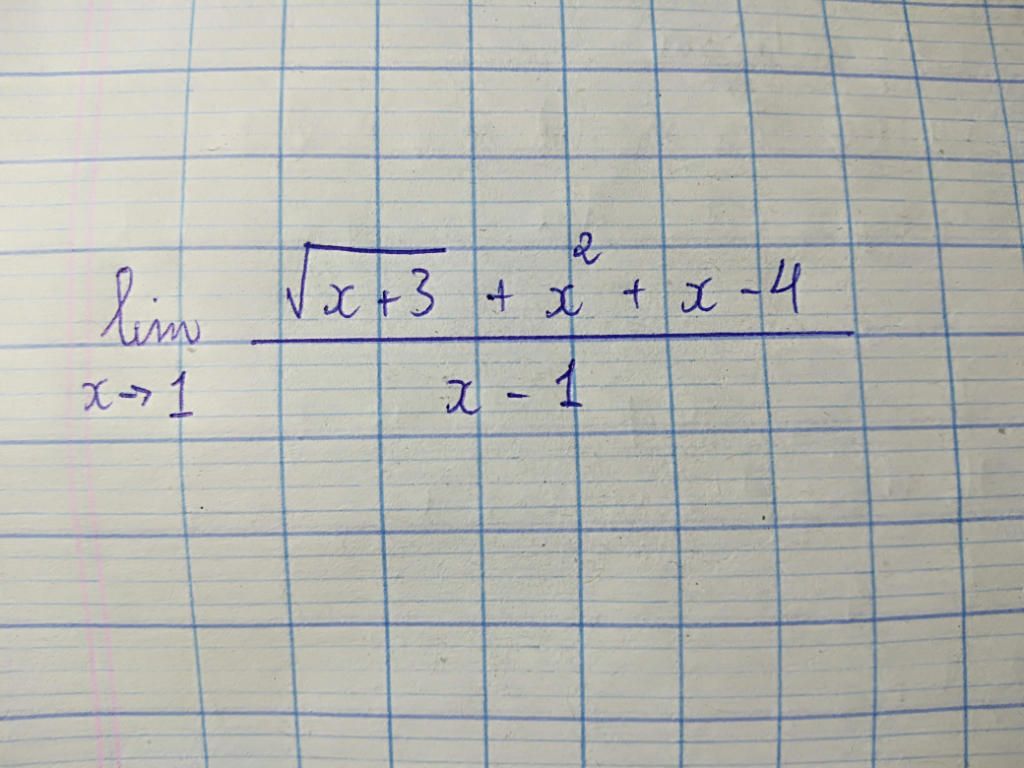 lim x→1 (√(x+3) + x² + x - 4) / (x - 1)